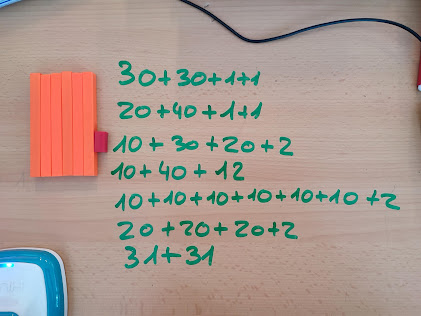 30+30+1+1
20+40+1+1
10+30+20+2
10+40+12
10+10+10+10+10+10+2
20+20+20+2
31+31